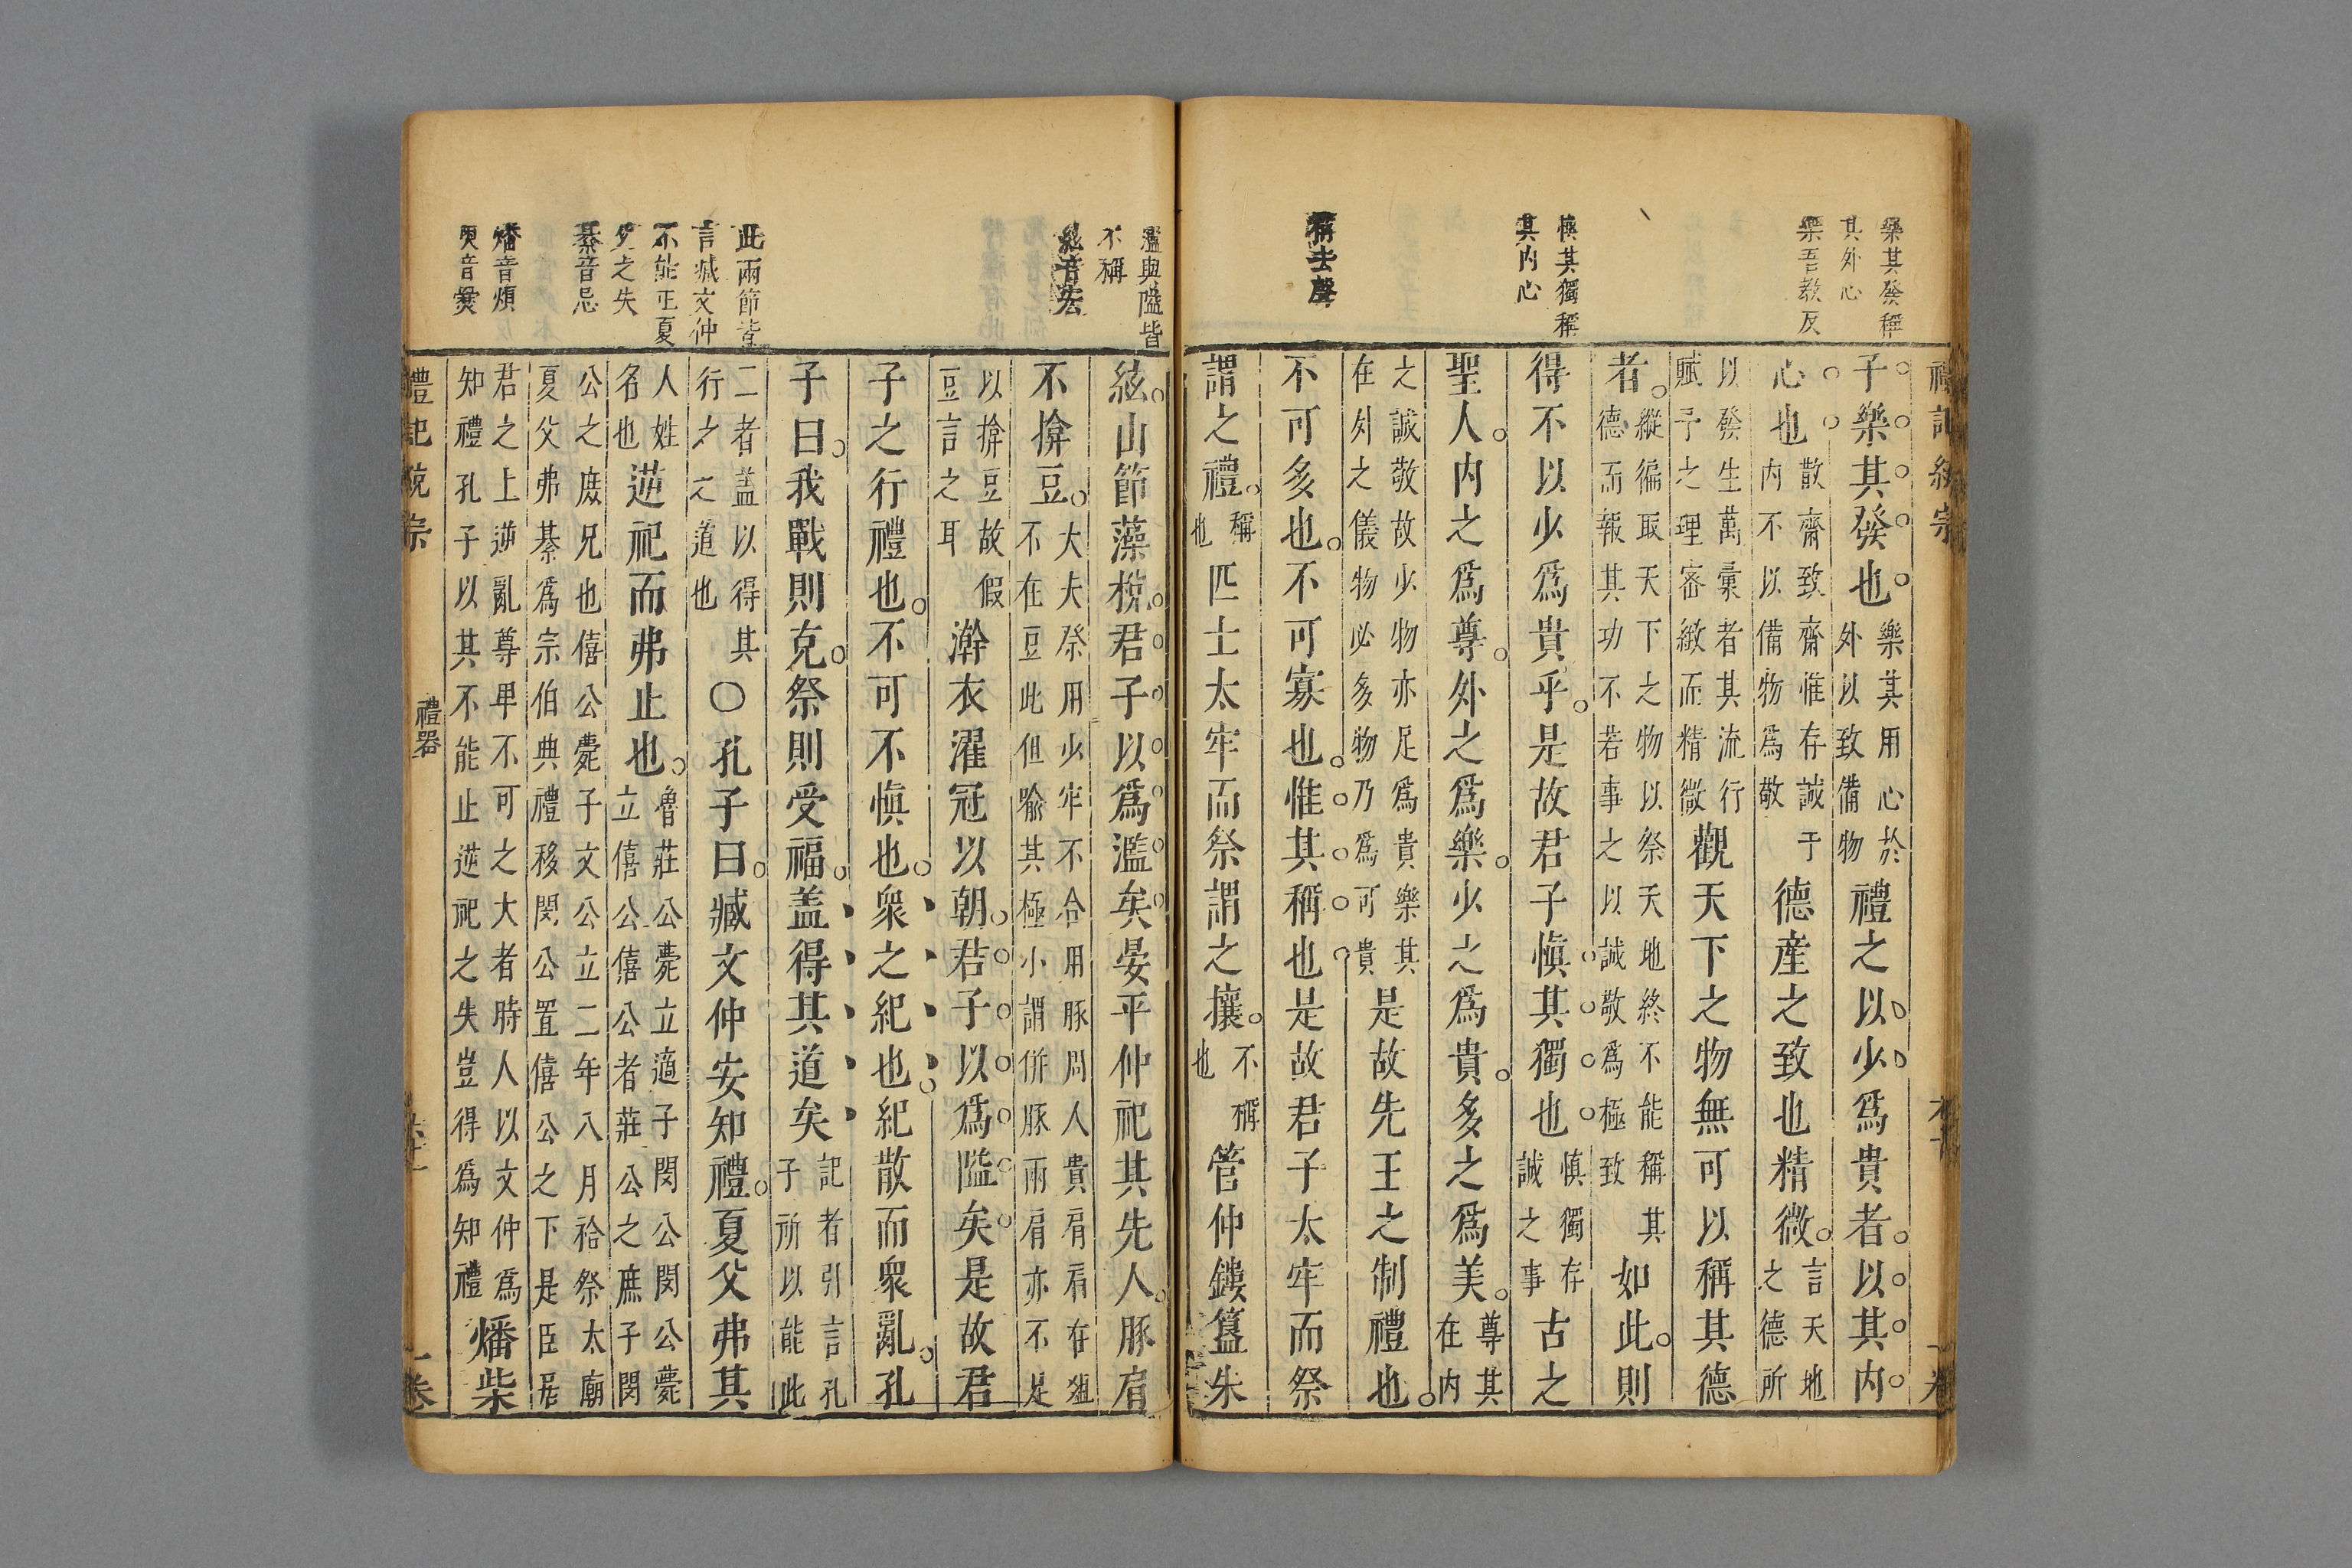 樂其發稱
其外心
樂吾教反
愼其獨稱
其內心
稱去聲
子樂其發也樂其用心於外以致備物禮之以少爲貴者以其內
心也散齋致齋惟存誠于內不以備物爲敬德産之致也精微言天地之德所
以發生萬彙者其流行賦予之理密緻而精微觀天下之物無可以稱其德
者縱徧取天下之物以祭天地終不能稱其德而報其功不若事之以誠敬爲極致如此則
得不以少爲貴乎是故君子愼其獨也愼獨存誠之事古之
聖人內之爲尊外之爲樂少之爲貴多之爲美尊其在內
之誠敬故少物亦足爲貴樂其在外之儀物必多物乃爲可貴是故先王之制禮也
不可多也不可寡也惟其稱也是故君子太牢而祭
謂之禮稱也匹士太牢而祭謂之攘不稱也管仲鏤簋朱
濫與隘皆
不稱
紘音宏
此兩節皆
言臧文仲
不能正夏
父之失
綦音忌
燔音煩
音爨
紘山節藻梲君子以爲濫矣晏平仲祀其先人豚肩
不揜豆大夫祭用少牢不合用豚周人貴肩肩在俎不在豆此但喻其極小謂併豚兩肩亦不足
以揜豆故假豆言之耳澣衣濯冠以朝君子以爲隘矣是故君
子之行禮也不可不愼也衆之紀也紀散而衆亂孔
子曰我戰則克祭則受福盖得其道矣記者引言孔子所以能此
二者盖以得其行之之道也○孔子曰臧文仲安知禮夏父弗其
人姓名也逆祀而弗止也魯莊公薨立適子閔公閔公薨立僖公僖公者莊公之庶子閔
公之庶兄也僖公薨子文公立二年八月祫祭太廟夏父弗綦爲宗伯典禮移閔公置僖公之下是臣居
君之上逆亂尊卑不可之大者時人以文仲爲知禮孔子以其不能止逆祀之失豈得爲知禮燔柴
禮記說宗
禮器